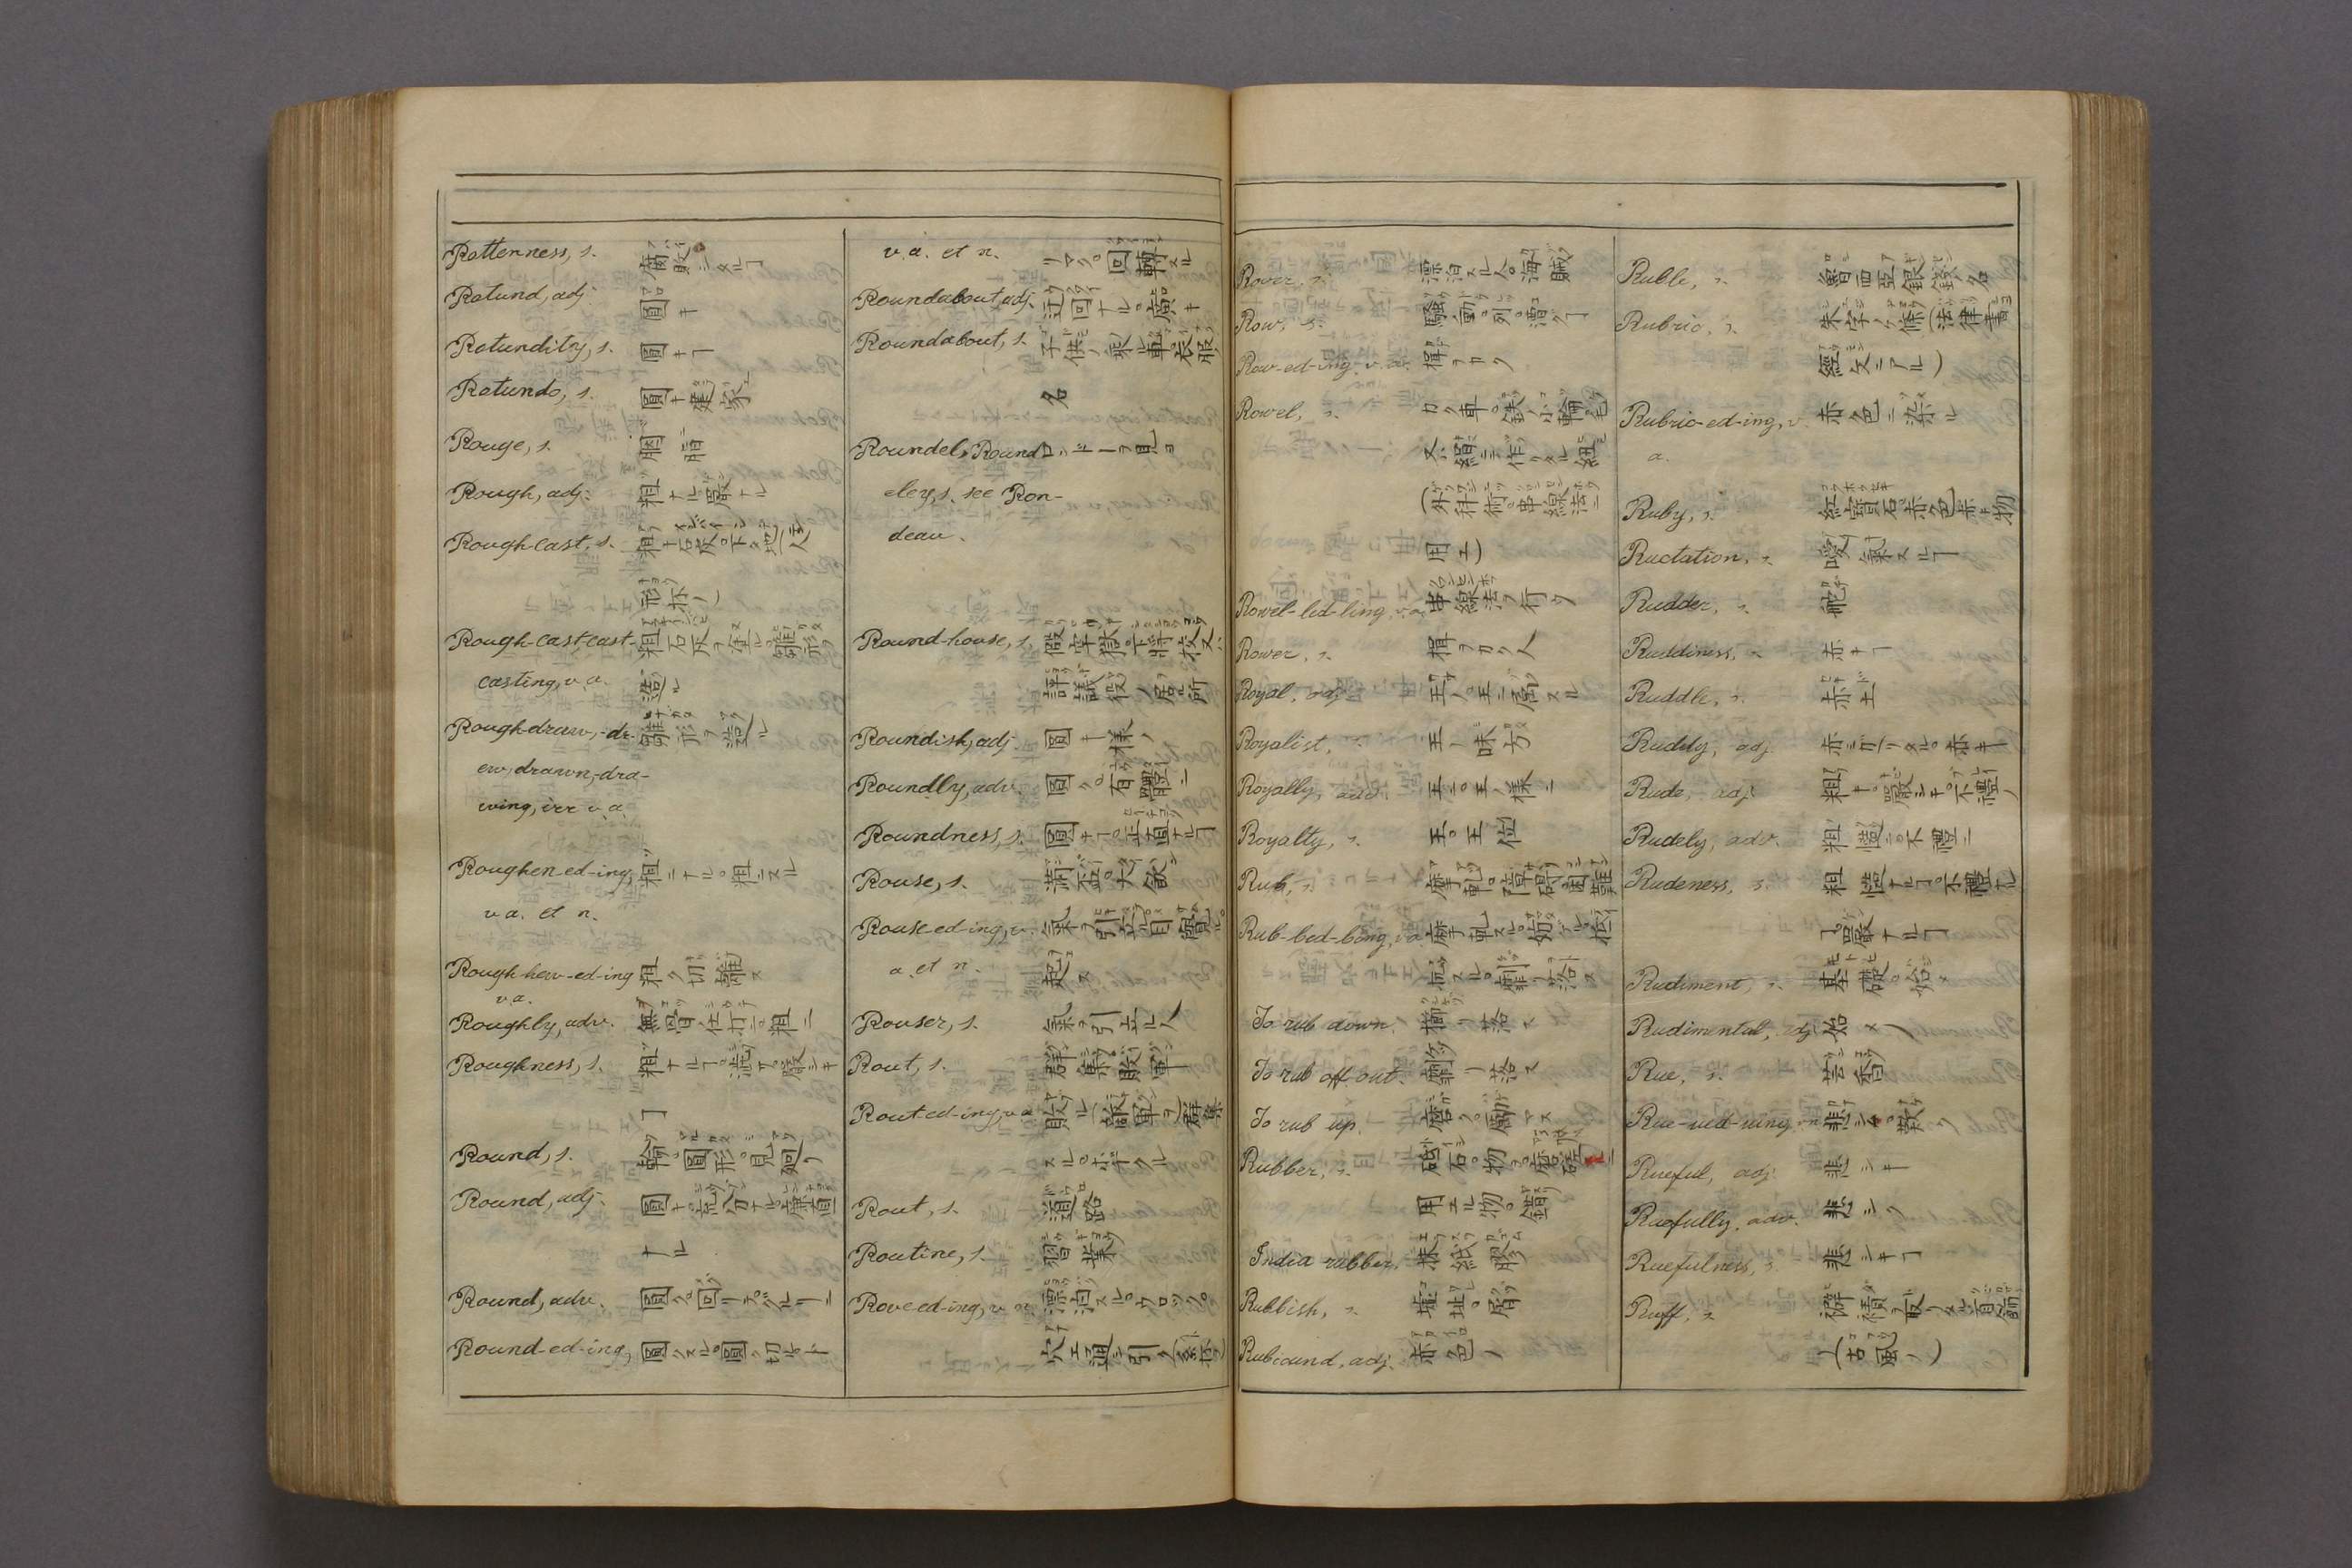 Rottenness, s. 腐敗シタルヿ
Rotund, adj. 圓キ
Rotundity, s. 圓キヿ
Rotundo, s. 圓キ建家
Rouge, s. 臙脂
Rough, adj. 粗ナル嚴ナル
Rough-cast, s. 粗キ石灰。下タ地(人
形抔ノ)
Rough-cast-cast- 粗石灰ヲ塗ル。雛形ヲ
casting, v.a. 造ル
Rough-draw,-dr- 雛形ヲ造ル
ew,-drawn,-dra-
wing, irr v.a.
Roughen-ed-ing, 粗ニナル。粗ニスル
v.a. et n.
Rough-hew-ed-ing 粗ク切。雛ス
v.a.
Roughly, adv. 粗ニ
Roughness, s. 粗ナルヿ。嚴シキ
ヿ
Round, s. 輪。圓形。見廻リ
Round, adj. 圓キ。廉直
ナル
Round, adv. 圓ク。回リニ
Round-ed-ing, 圓クスル。圓ク切ル
v.a. et n. リマク。回轉スル
Roundabout, adj. 迂回ナル。廣キ
Roundabout, s. 子供ノ乘ル車。衣服ノ
名
Roundel, Round- ロッドーヲ見ヨ
eley, s. see Ron-
deau.
Round-house, s.
評議役ノ居ル所
Roundish, adj. 圓キ様ノ
Roundly, adv. 圓ク。
Roundness, s. 圓キヿ。正直ナルヿ
Rouse, s. 滿盃。大飲
Rouse-ed-ing, v. 氣ヲ引立ル。目ヲ覺ス。
a. et n. 起ス
Rouser, s. 氣ヲ引立ル人
Rout, s. 群集。敗軍
Rout-ed-ing, v.a. 敗ル。敵軍ヲ。群集
スル。
Rout, s. 道路
Routine, s. 習業
Rove-ed-ing, v. n. 漂泊スル。ウロツク。
穴エ通シ引ク
Rover, s. 漂泊スル人。海賊
Row, s. 騷動。列。漕クヿ
Row-ed-ing, v. a. 楫ヲカク
Rowel, s. 車。鉄ノ小輪。
又絹ニテ作リタル紐
(外科術。串線法ニ
用エ)
Rowel-led-ling, v.a. 串線法ヲ行フ
Rower, s. 楫ヲカク人
Royal, adj. 王ノ。王ニ屬スル
Royalist, s. 王ノ味方
Royally, adv. 王ニ。王ノ様ニ
Royalty, s. 王。王位
Rub, s. 摩軋。障碍。困難
Rub-bed-bing, v.a. 摩軋スル。妨ケル。
To rub down. 擦リ落ス
To rub off. out. 削リ落ス
To rub up. 磨ク。勵マス
Rubber, s. 砥石。物ヲ磨クニ
用エル物。鑢
India rubber,
Rubbish, s. 墟址。屑
Rubicund, adj. 赤色ノ
Ruble, s. 魯西亞銀錢ノ名
Rubric, s. 朱字ノ條(法律書
經文ニアル)
Rubric-ed-ing, v. 赤色ニ染ル
a.
Ruby, s. 紅寶石。赤色。赤キ物
Ructation, s. 噯氣スルヿ
Rudder, s. 舵
Ruddiness, s. 赤キヿ
Ruddle, s. 赤土
Ruddy, adj. 赤ミガヽリタル。赤キ
Rude, adj. 粗キ。嚴シキ。不禮ノ
Rudely, adv. 粗慥ニ。不禮ニ
Rudeness, s. 粗慥ナルヿ。不禮ナル
ヿ。嚴ナルヿ
Rudiment, s. 基礎。始メ
Rudimental, adj. 始メノ
Rue, s. 芸香
Rue-ued-uing, v.n. 悲シム。歎ク
Rueful, adj. 悲シキ
Ruefully, adv. 悲シク
Ruefulness, s. 悲シキヿ
Ruff, s. 襞積ヲ取リタル首飾
(古風ノ)